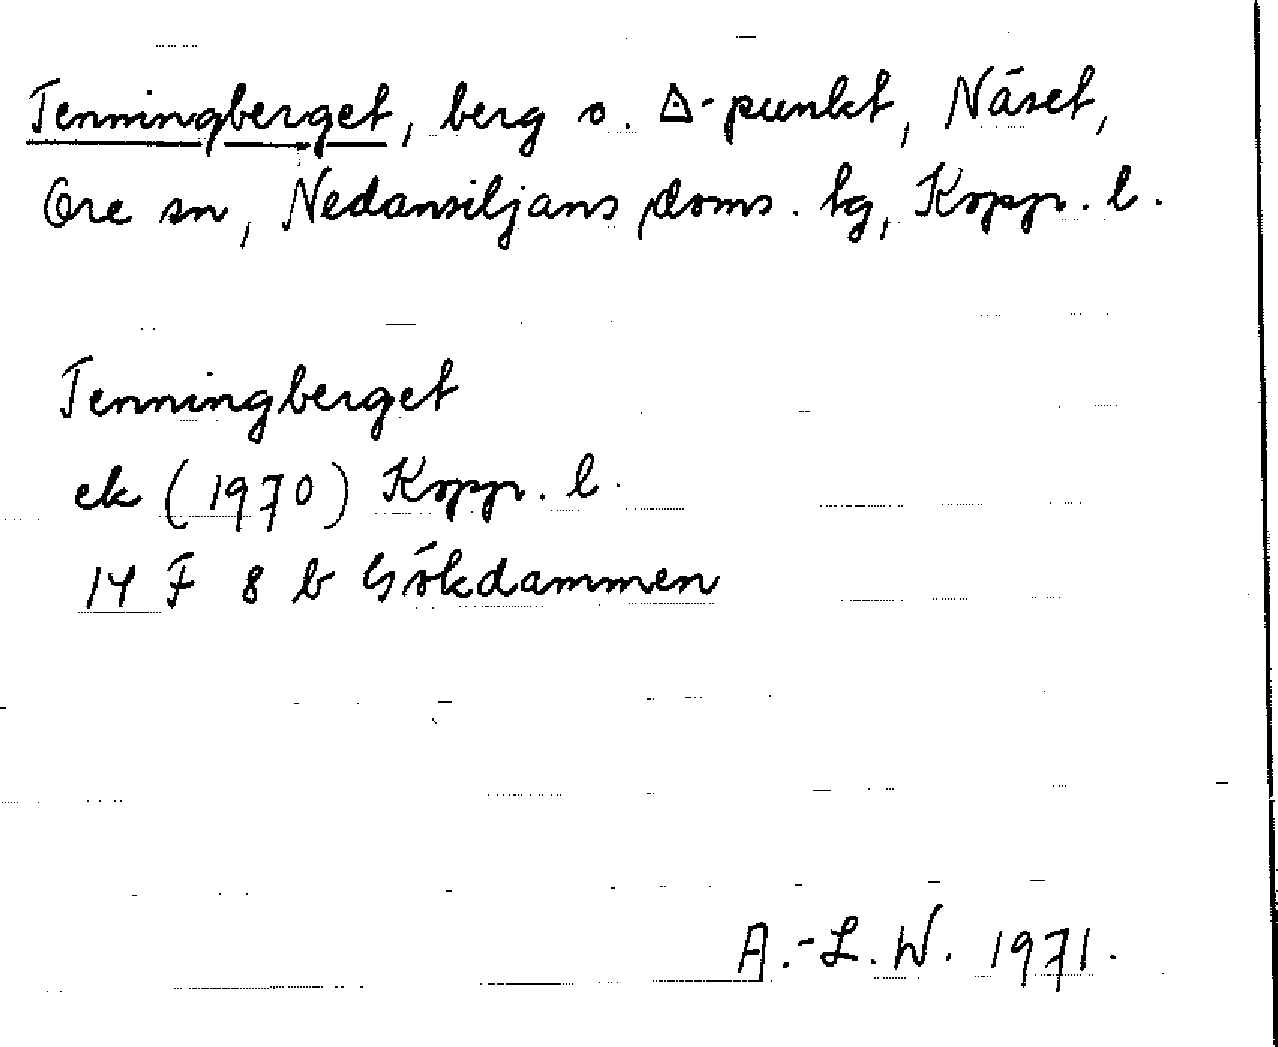 Tenningberget, berg o. △-punkt, Näset,
Ore sn, Nedansiljans doms. hg, Kopp. l.
Tenningberget
ek (1970) Kopp. l.
14 F 8 b Gökdammen
A.-L. W. 1971.